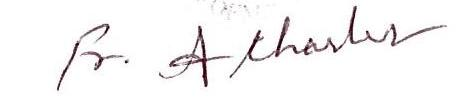 Fr. A Charles